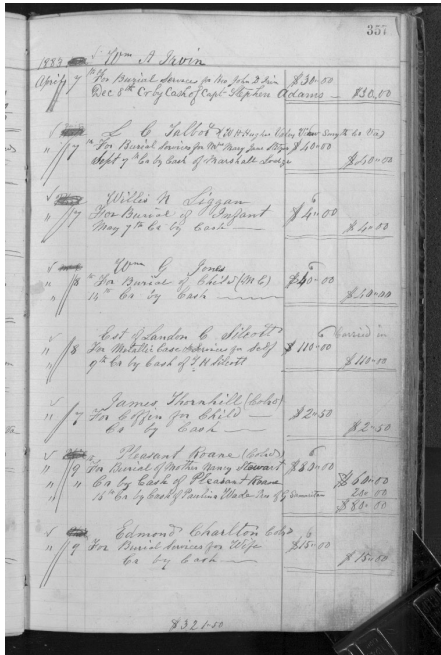 357
1883 Wm A Irvin
April 7 For Burial Services for Mrs John D Irvin $30.00
Dec 8th Cr by Cash of Capt. Stephen Adams — $30.00
L C Talbot
" 7 For Burial Services for Mrs Mary Jane $40.00
Sept 7th Cr by Cash of Marshall Lodge $40.00
Willis N Liggan
" 7 For Burial of Infant $4.00
May 7th Cr by Cash — $4.00
Wm G Jones
" 8 For Burial of Child (M.C.) $40.00
14th Cr by Cash — $40.00
Est of Landon C. Silcott Carried in
" 8 For Metallic Case & Services for Self $110.00
9th Cr by Cash of T. H. Silcott $110.00
James Thornhill (Cold)
" 7 For Coffin for Child $2.50
Cr by Cash — $2.50
Pleasant Roane (Cold)
" 9 For Burial of Mother Mary Stewart $80.00
" " Cr by Cash of Pleasant Roane $60.00
15th Cr by Cash of Paulina Wade 20.00
$80.00
Edmond Charlton Cold
" 9 For Burial Services for Wife $15.00
Cr by Cash — $15.00
$321.50